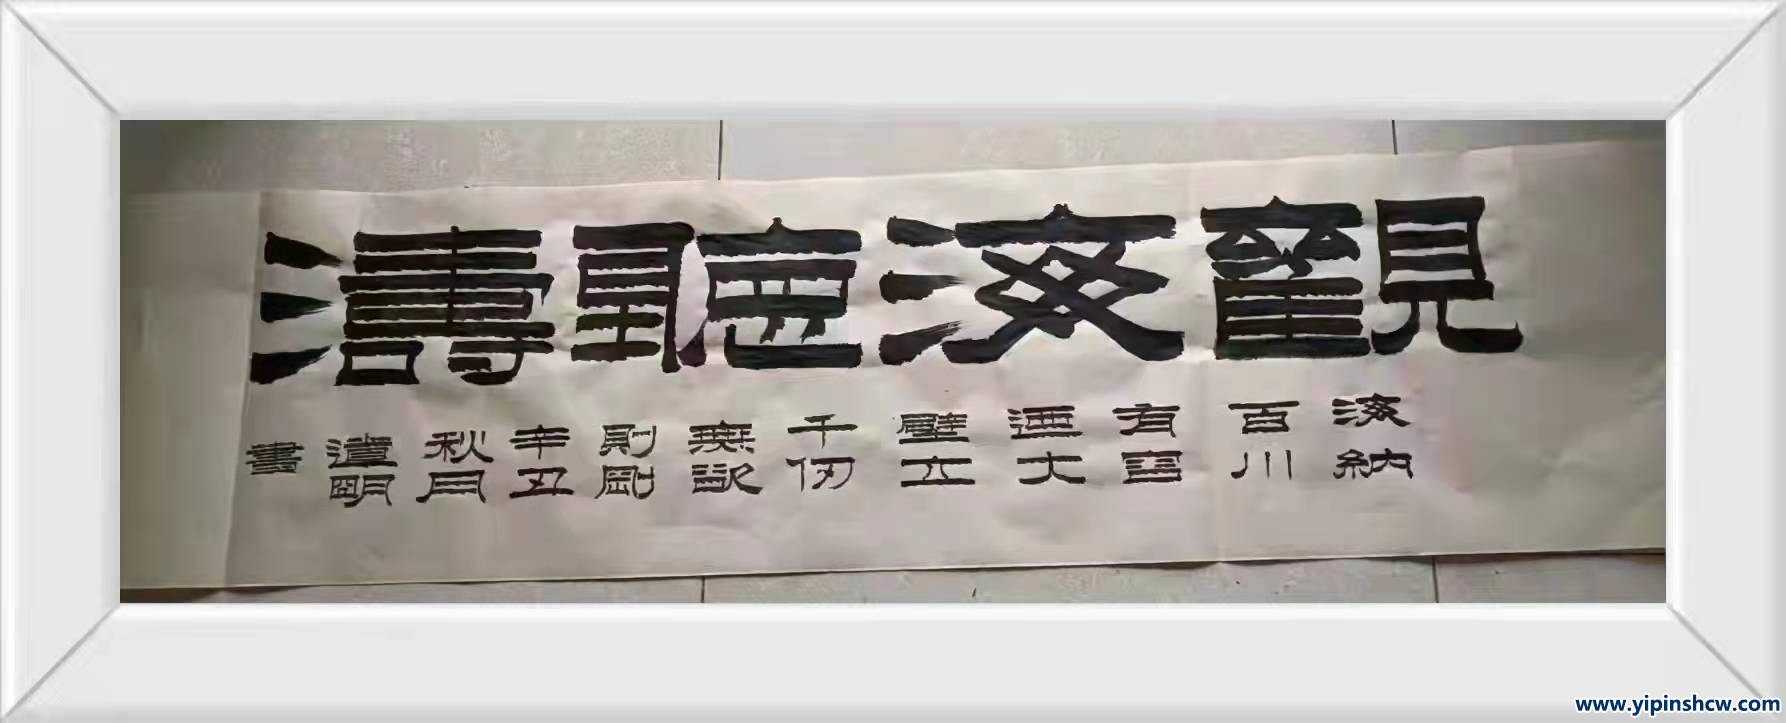 觀海聽濤
海納
百川
有容
迺大
壁立
千仞
無欲
則剛
辛丑
秋月
明
書
www.yipinshcw.com